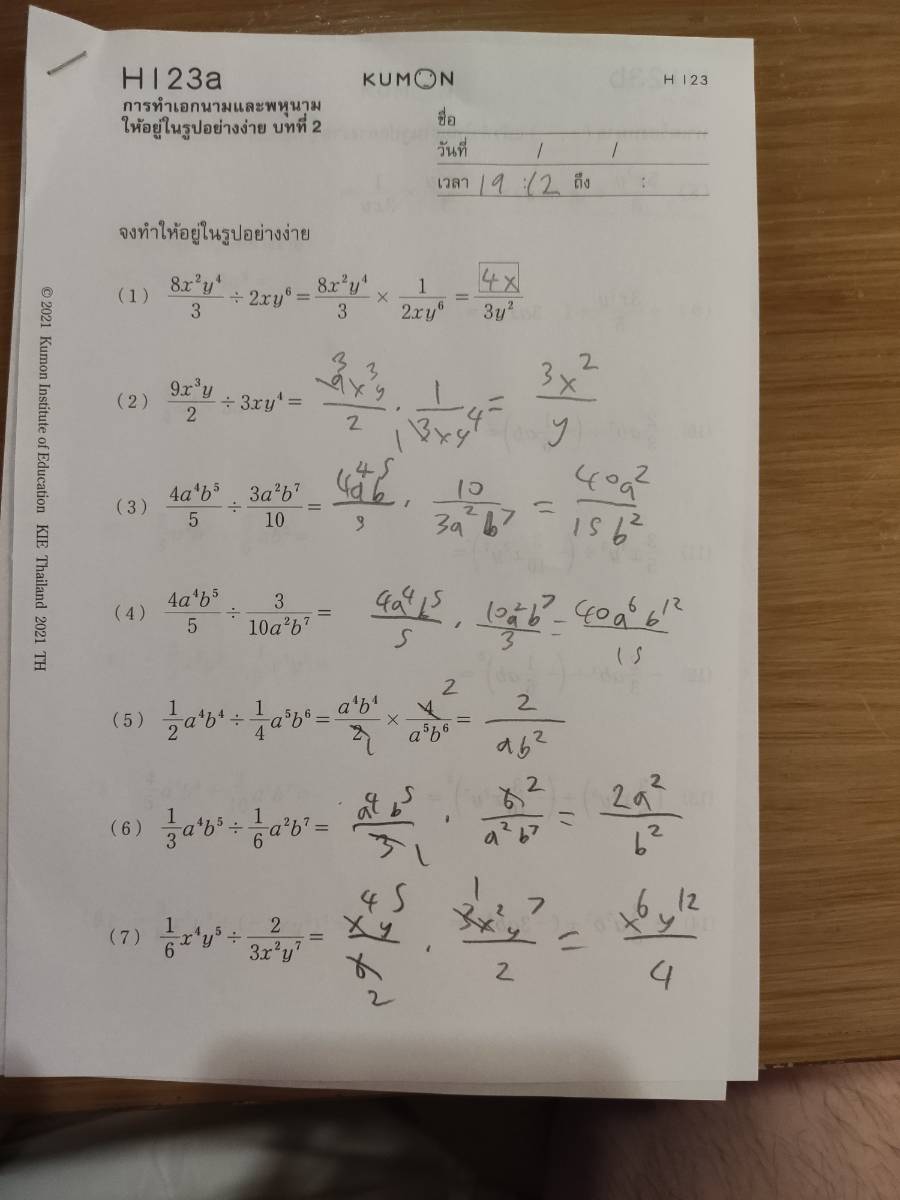 H123a KUMON H 123
การทำเอกนามและพหุนาม
ให้อยู่ในรูปอย่างง่าย บทที่ 2
ชื่อ
วันที่ / /
เวลา 19 : 12 ถึง :
จงทำให้อยู่ในรูปอย่างง่าย
(1) 8x²y⁴/3 ÷ 2xy⁶ = 8x²y⁴/3 × 1/2xy⁶ = 4x/3y²
(2) 9x³y/2 ÷ 3xy⁴ = 3 9x³y/2 · 1/1 3xy⁴ = 3x²/y
(3) 4a⁴b⁵/5 ÷ 3a²b⁷/10 = 4a⁴b⁵/5 · 10/3a²b⁷ = 40a²/15b²
(4) 4a⁴b⁵/5 ÷ 3/10a²b⁷ = 4a⁴b⁵/5 · 10a²b⁷/3 = 40a⁶b¹²/15
(5) 1/2 a⁴b⁴ ÷ 1/4 a⁵b⁶ = a⁴b⁴/2 1 × 4 2/a⁵b⁶ = 2/ab²
(6) 1/3 a⁴b⁵ ÷ 1/6 a²b⁷ = a⁴b⁵/3 1 · 6 2/a²b⁷ = 2a²/b²
(7) 1/6 x⁴y⁵ ÷ 2/3x²y⁷ = x⁴y⁵/6 2 · 1 3x²y⁷/2 = x⁶y¹²/4
© 2021 Kumon Institute of Education KIE Thailand 2021 TH